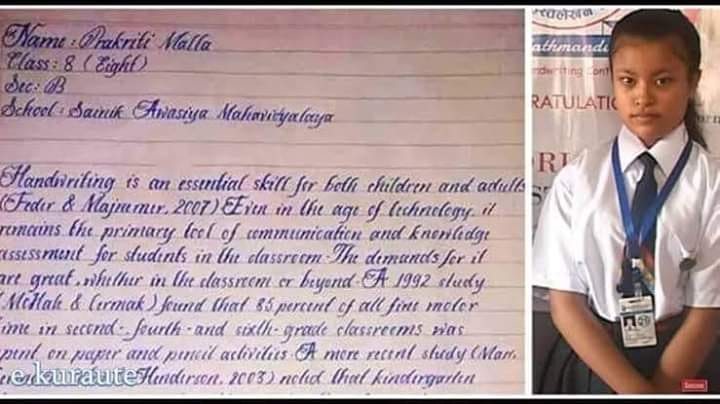 Name : Prakriti Malla
Class : 8 ( Eight )
Sec : B
School : Sainik Awasiya Mahavidyalaya
Handwriting is an essential skill for both children and adults
(Feder & Majnemer, 2007) Even in the age of technology, it
remains the primary tool of communication and knowledge
assessment for students in the classroom. The demands for it
are great, whether in the classroom or beyond. A 1992 study
McHale & Cermak) found that 85 percent of all fine motor
ime in second-, fourth-and sixth-grade classrooms was
pent on paper and pencil activities. A more recent study (Marr,
Henderson, 2003) noted that kindergarten
e.kuraute
athmandu
RATULATIO